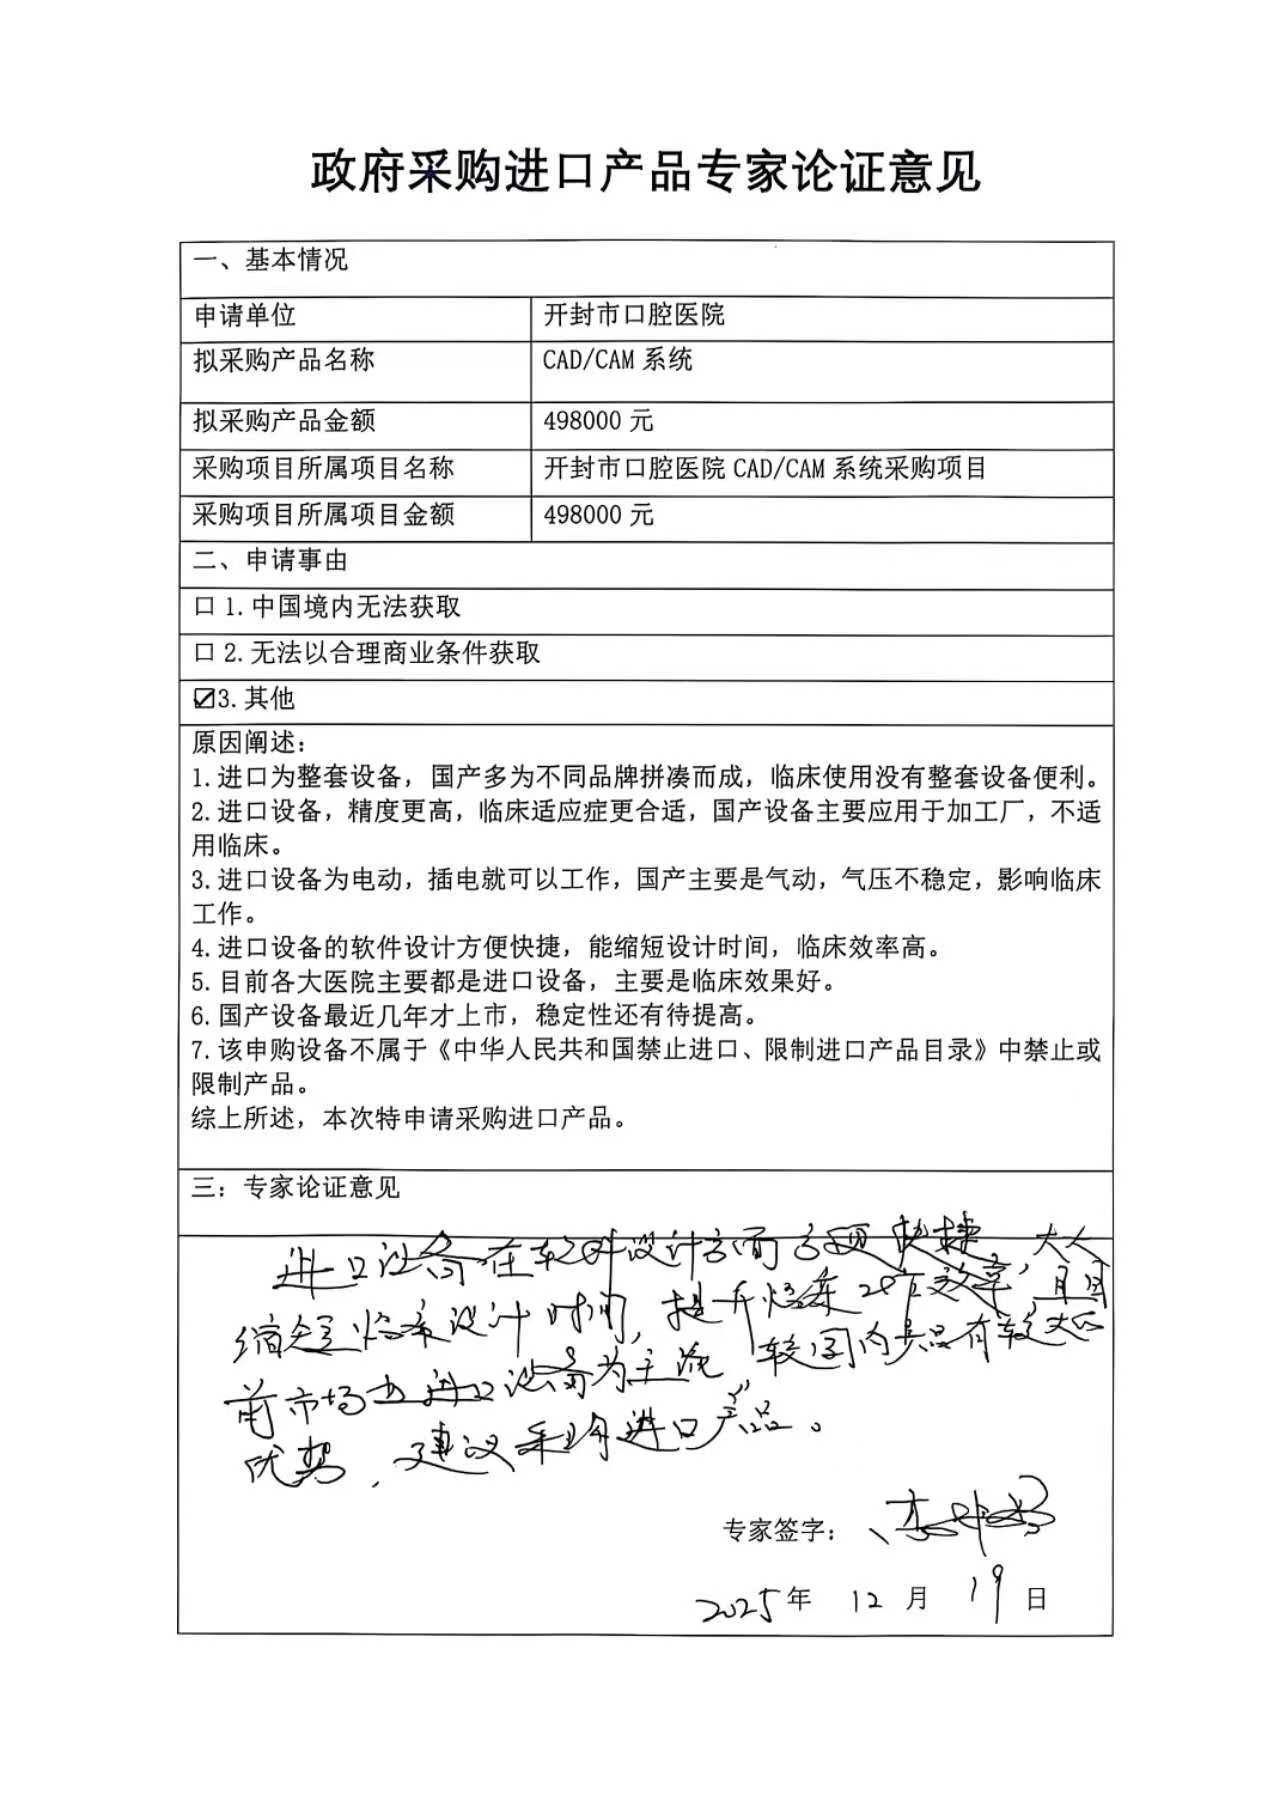 政府采购进口产品专家论证意见
一、基本情况
申请单位 开封市口腔医院
拟采购产品名称 CAD/CAM 系统
拟采购产品金额 498000 元
采购项目所属项目名称 开封市口腔医院 CAD/CAM 系统采购项目
采购项目所属项目金额 498000 元
二、申请事由
☐ 1.中国境内无法获取
☐ 2.无法以合理商业条件获取
☑3.其他
原因阐述：
1.进口为整套设备，国产多为不同品牌拼凑而成，临床使用没有整套设备便利。
2.进口设备，精度更高，临床适应症更合适，国产设备主要应用于加工厂，不适
用临床。
3.进口设备为电动，插电就可以工作，国产主要是气动，气压不稳定，影响临床
工作。
4.进口设备的软件设计方便快捷，能缩短设计时间，临床效率高。
5.目前各大医院主要都是进口设备，主要是临床效果好。
6.国产设备最近几年才上市，稳定性还有待提高。
7.该申购设备不属于《中华人民共和国禁止进口、限制进口产品目录》中禁止或
限制产品。
综上所述，本次特申请采购进口产品。
三：专家论证意见
进口设备在软件设计方面方便快捷，大大
缩短临床设计时间，提升临床工作效率，且目
前市场以进口设备为主流，较国内产品有较大
优势，建议采购进口产品。
专家签字：
2025年 12 月 19 日